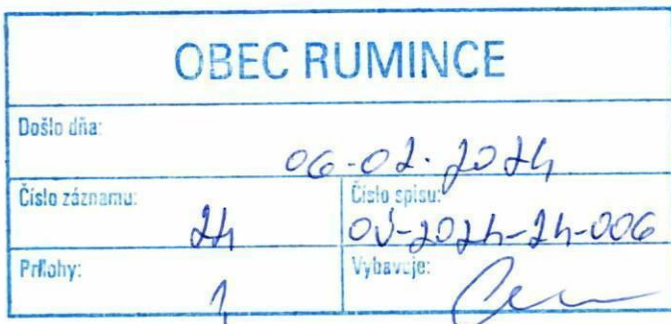 OBEC RUMINCE
Došlo dňa:
06-02-2024
Číslo záznamu:
24
Číslo spisu:
OÚ-2024-24-006
Prílohy:
1
Vybavuje: